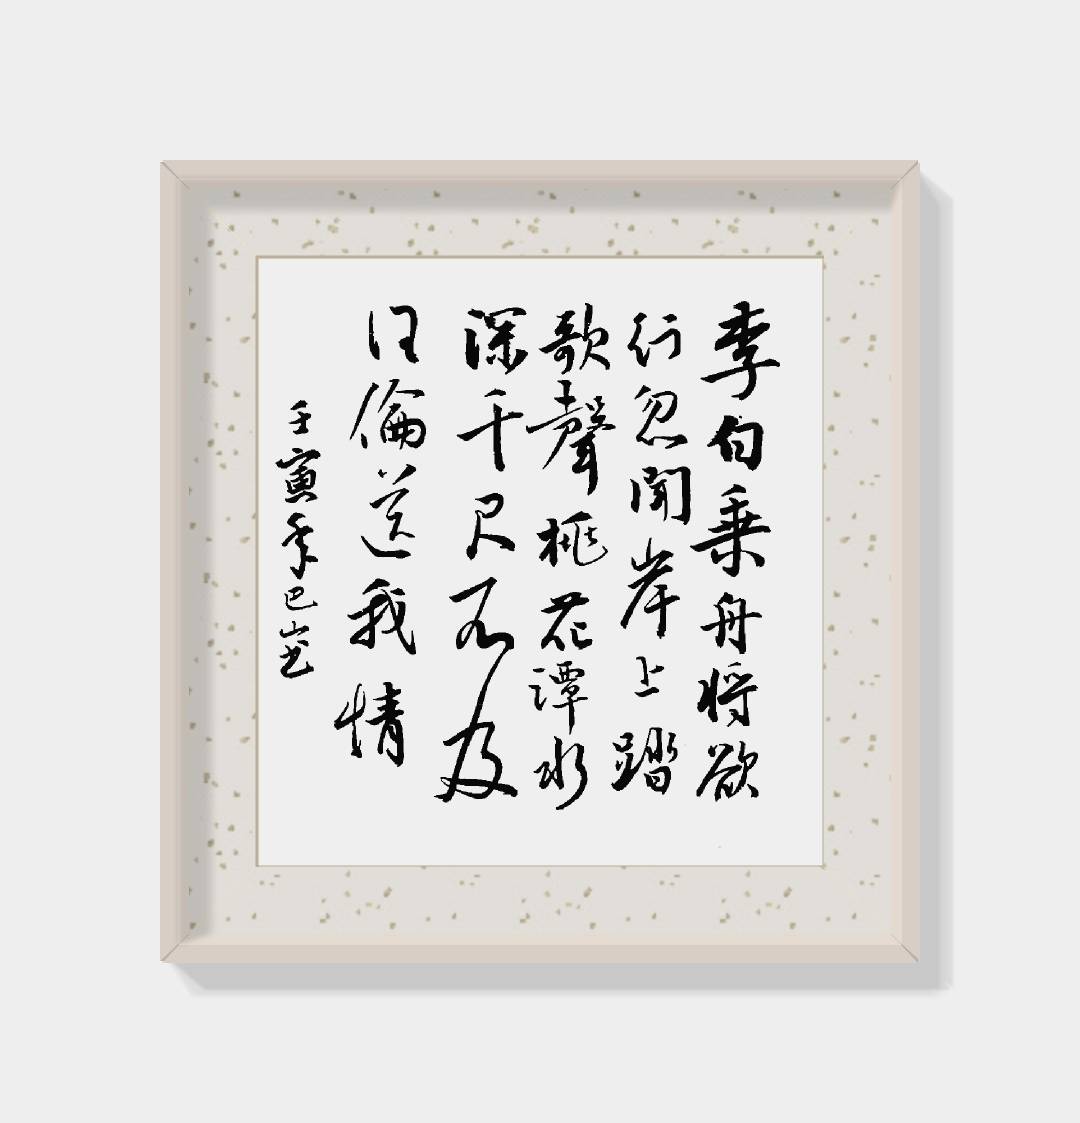 李白乘舟将欲
行忽聞岸上踏
歌聲桃花潭水
深千尺不及
汪倫送我情
壬寅年巴山